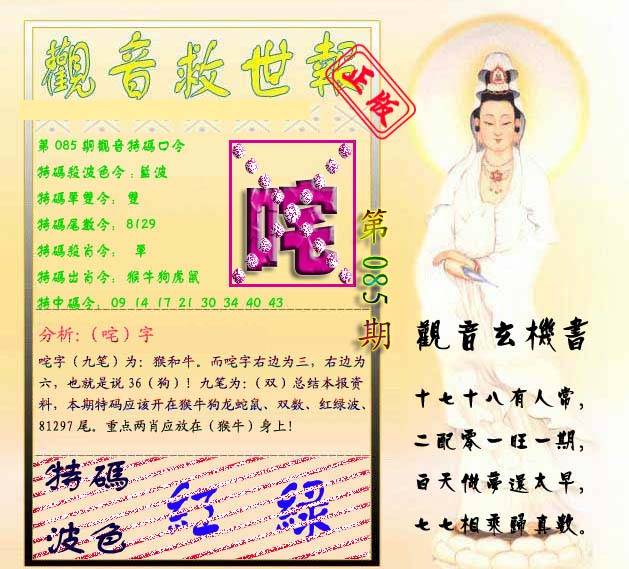 觀音救世報
正版
第085期觀音特碼口令
特碼殺波色令:藍波
特碼單雙令: 雙
特碼尾數令: 8129
特碼殺肖令: 單
特碼出肖令: 猴牛狗虎鼠
特中碼令: 09 14 17 21 30 34 40 43
咤
第085期
分析:（咤）字
咤字（九笔）为：猴和牛。而咤字右边为三，右边为
六，也就是说36（狗）！九笔为：（双）总结本报资
料，本期特码应该开在猴牛狗龙蛇鼠、双数、红绿波、
81297尾。重点两肖应放在（猴牛）身上！
特碼
波色
紅 綠
觀音玄機書
十七十八有人常，
二配零一旺一期，
百天做夢還太早，
七七相乘歸真數。